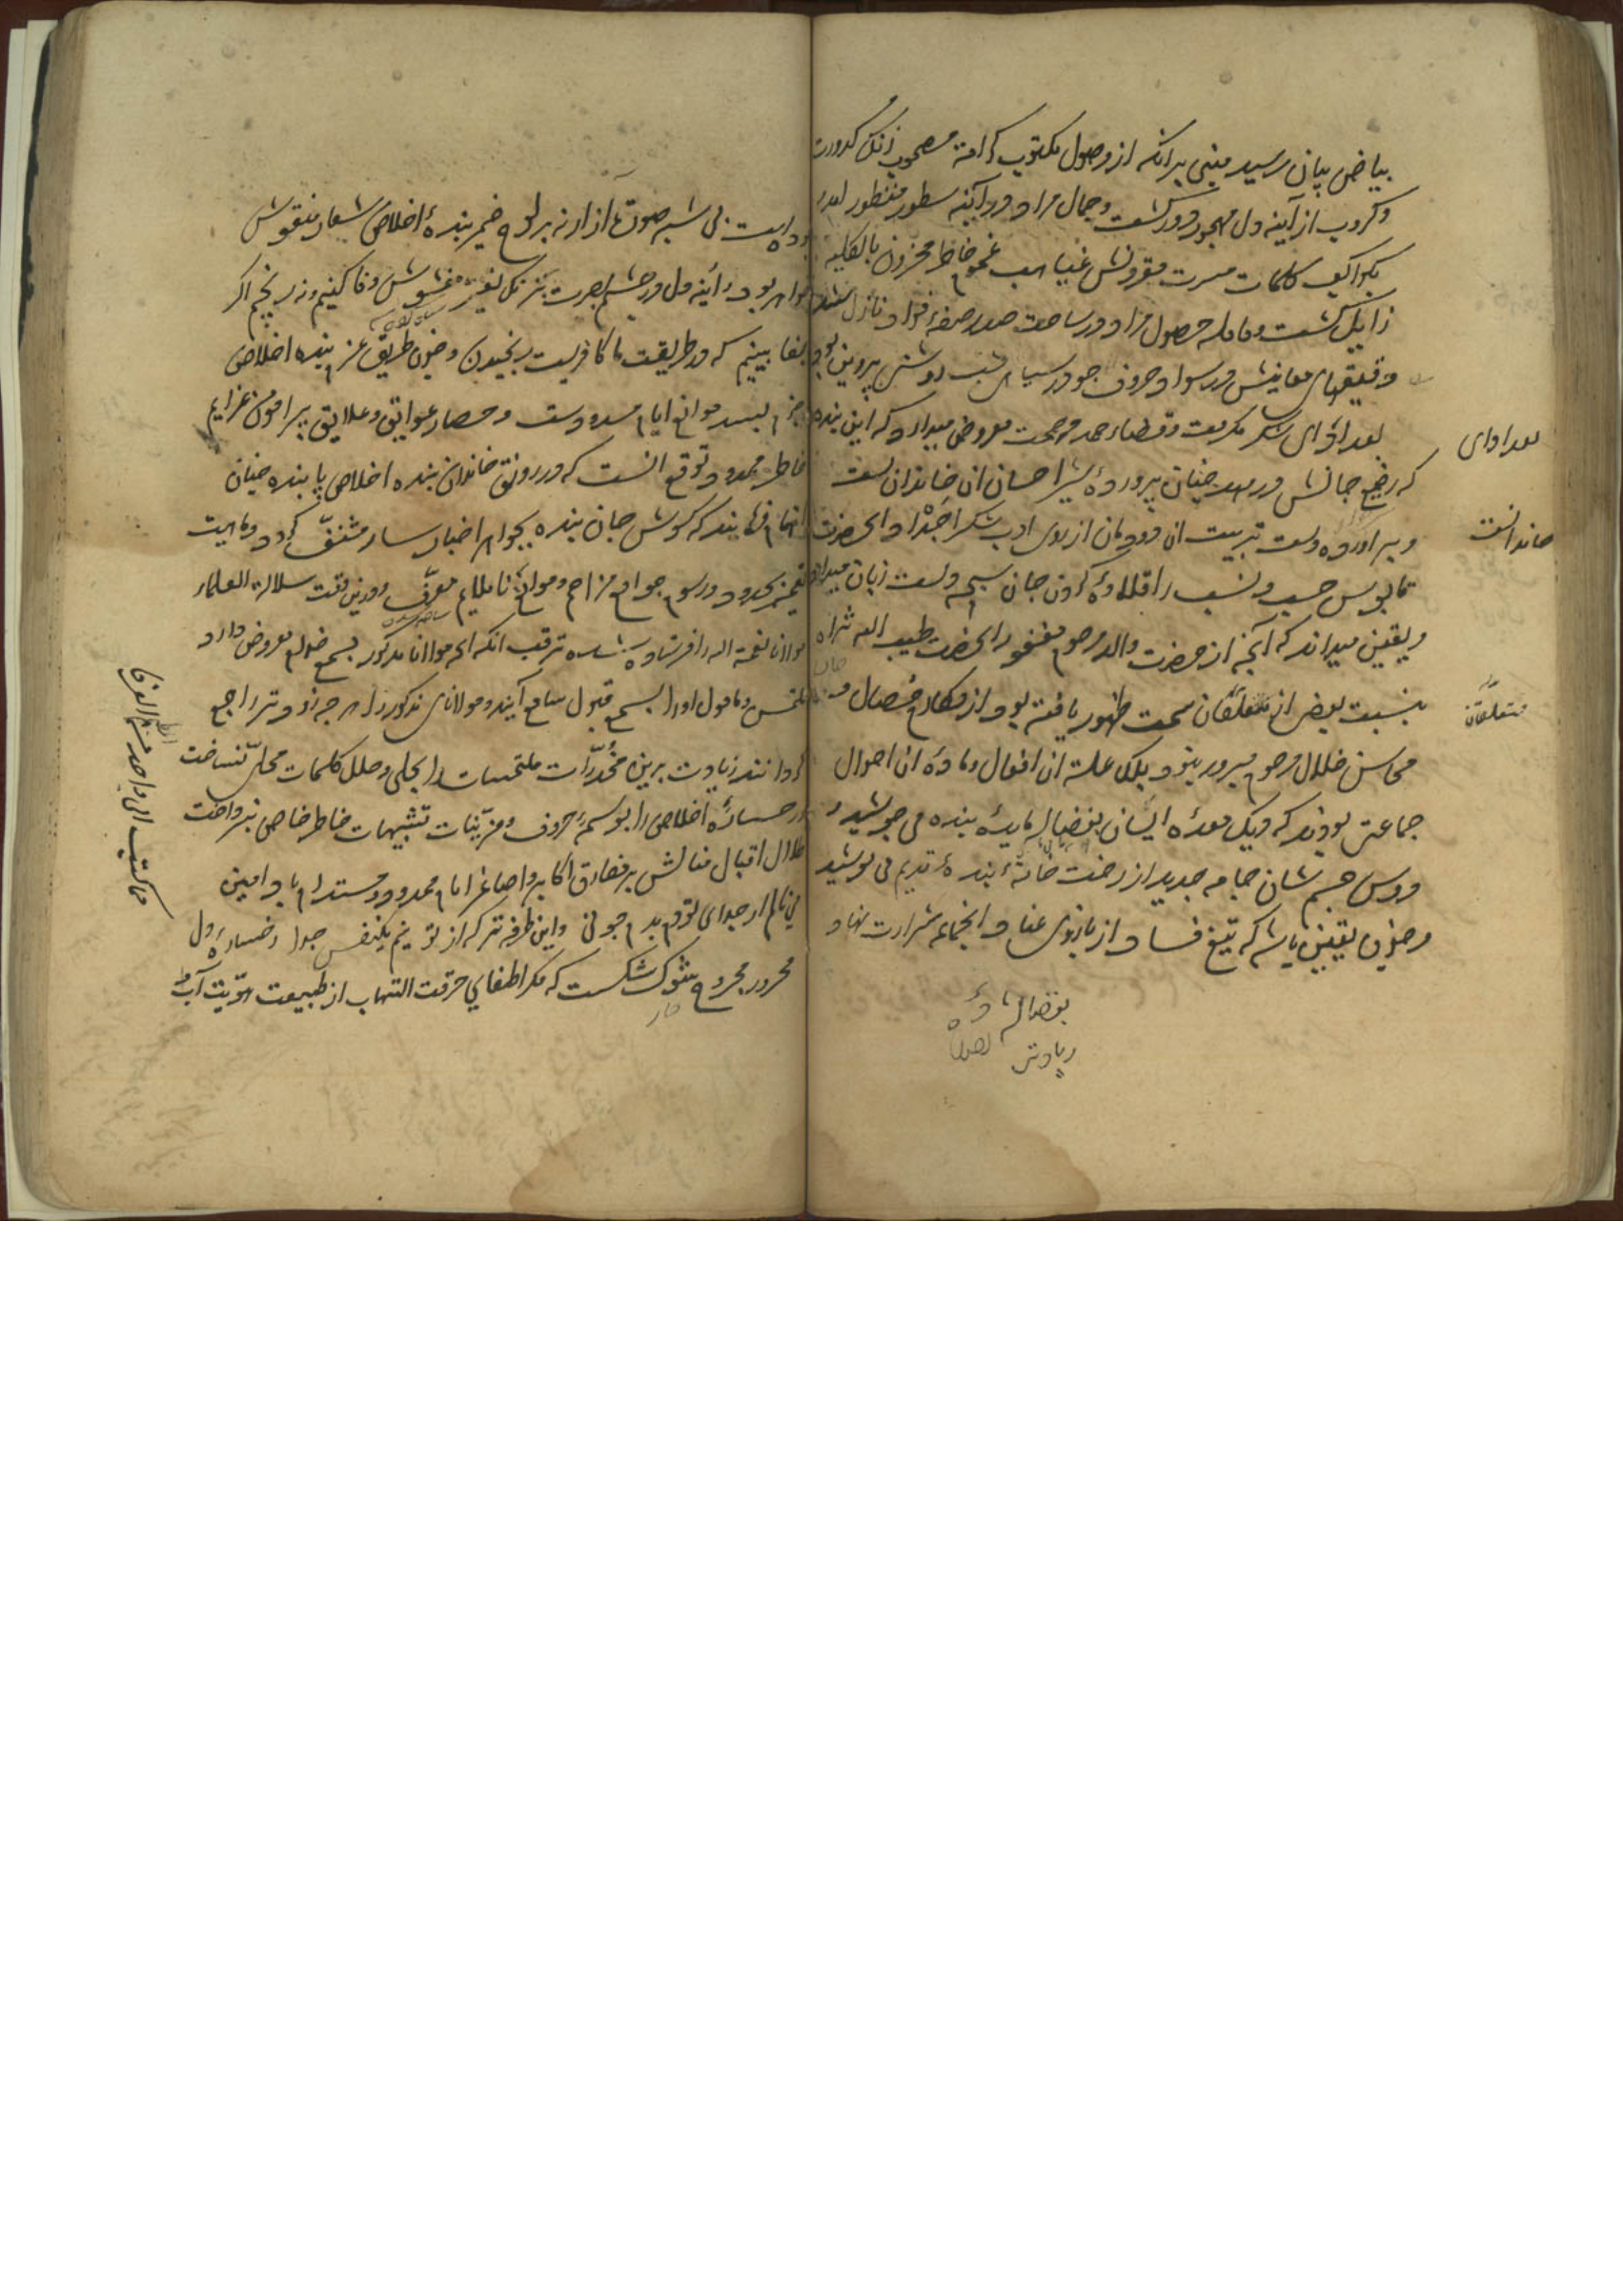 بیاض بیان رسید مبنی برانکه از وصول مکتوب کرامة مصحوب زنک کدورت
و کروب از آینه دل مهجور دور کشت و جمال مراد در آئینه سطور منظور
بکواکب کلمات مسرت مقرونش غیاهب غموم خاطر محزون بالکلیه
زایل کشت و حامله حصول مراد در ساحت صدر صفه فواد نازل
دقیقهای معانیش در سواد حروف جو در سیاهی شب روشنی پروین بود
بعد ادای شکر مکرمت و قضاء حمد مرحمت معروض میدارد که این بنده
که رضیع جانش در مهد جنان پروردهٔ شیر احسان ان خاندان است
و براورده دست تربیت ان دودمان از روی ادب شکر اجداد انحضرت
تا بوس حسب و نسب را قلادهٔ کردن جان سبحهٔ دست زبان میدارد
و یقین میداند که آنجه از حضرت والد مرحوم مغفور انحضرت طیب الله ثراه
بنسبت بعضی از متعلقان سمت ظهور یافته بود از مکارم خصال و
محاسن خلال مرحوم مبرور بنود بلکه علت ان افعال و مادهٔ ان احوال
جماعتی بودند که دیک معدهٔ ایشان بفضاله مایدهٔ بنده می جوشید
و دوس جسم شان جامه جدید از رخت خانهٔ بندهٔ قدیم می پوشید
و جون یقین باشد که تیغ فساد از بازوی عناد انجماعه شرارت نهاد
بعد ادای
خاندانست
متعلقان
بفضاله
بی شبه صورت آزار نه بر لوح ضمیر بندهٔ اخلاص شعار منقوش
خواهد بود و آئینه دل در جشم بصیرت بزنک تغیر مغشوش وفا کنیم و نه رنجیم اکر
جفا بینیم که در طریقت ما کافریست رنجیدن و جون طریق عزم بنده اخلاص
جزم بسد موانع ایام مسدودست و حصار عوایق و علایق پیرامون عزایم
خاطر ممدود توقع انست که در رونق خاندان بنده اخلاص پاینده جنان
اهتمام فرمایند که کوش جان بنده بجواهر اخبار سار مشنف کردد و ماهیت
بحدود و رسوم جوامع مزاحم و موانع ناملایم معرف و درین وقت سلالة العلماء
مولانا نعمة الله را فرستاده شده ترقب انکه انجه مولانا مذکور بسمع خدام معروض دارد
ملتمس و مامول او را بسمع قبول سامع آیند و مولانای مذکور را هر جه زود تر راجع
کردانند زیادت برین مخدرات ملتمسات را بحلی و حلل کلمات محلی نساخت
و رخسارهٔ اخلاص را بوسمهٔ حروف و مزینات تشبیهات خاطر خاص نپرداخت
ظلال اقبال منالش بر مفارق اکابر و اصاغر انام ممدود و مستدام باد امین
می نالم از جدای تو دم بدم جو نی و این طرفه تر که از تو نیم یکنفس جدا رخساره دل
محرور مجروح بشوک شکست که مکر اطفای حرقت التهاب از طبیعت
مما کتب الی واحد من